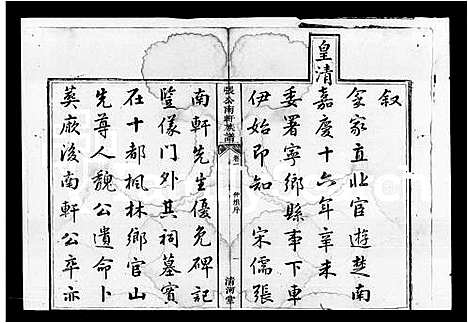 皇清
叙
余家直北官遊楚南
嘉慶十六年辛未
委署寧鄉縣事下車
伊始即知 宋儒張
張公南軒族譜 卷 仲班序 一 清河堂
南軒先生優免碑記
豎儀門外其祠墓實
在十都楓林鄉官山
先尊人魏公遺命卜
葬厥後南軒公卒亦